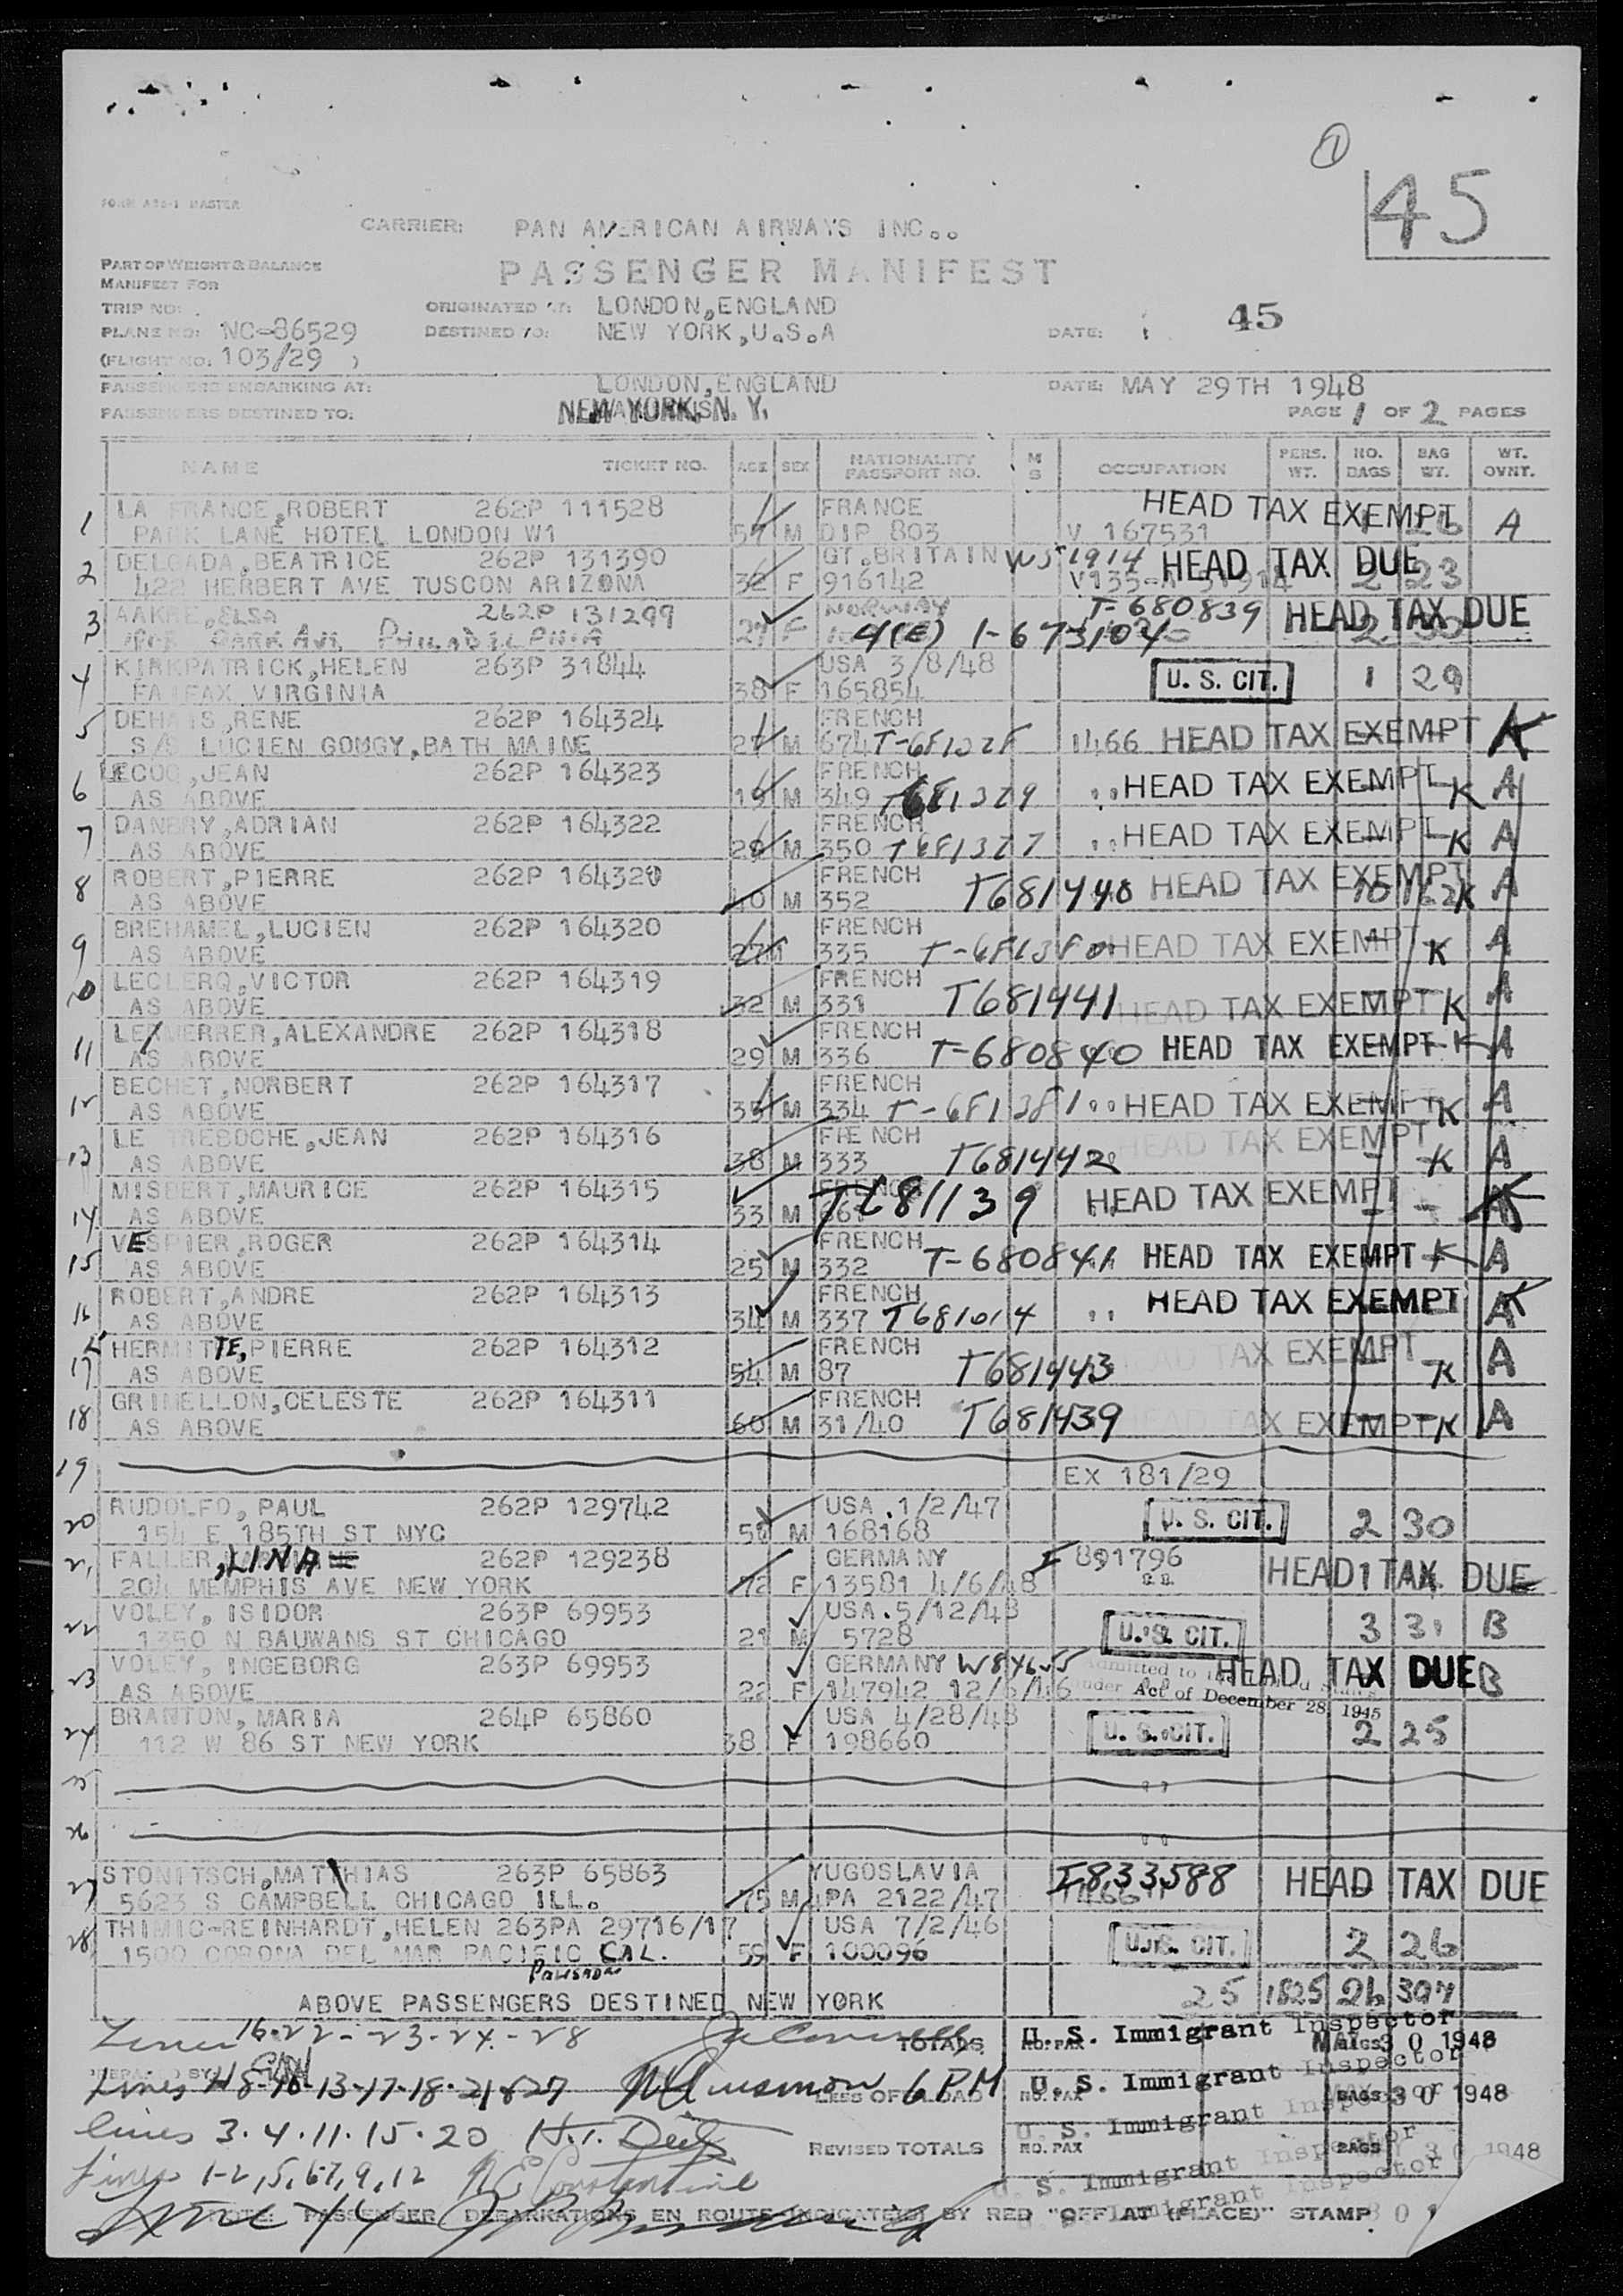 1
45
FORM MASTER
CARRIER: PAN AMERICAN AIRWAYS INC..
PART OF WEIGHT & BALANCE
MANIFEST FOR
PASSENGER MANIFEST
TRIP NO:
ORIGINATED AT: LONDON,ENGLAND
45
PLANE NO: NC-86529
DESTINED TO: NEW YORK,U.S.A
DATE:
(FLIGHT NO: 103/29 )
PASSENGERS EMBARKING AT: LONDON,ENGLAND
DATE: MAY 29TH 1948
PASSENGERS DESTINED TO: NEW YORK, N. Y.
PAGE 1 OF 2 PAGES
NAME TICKET NO. AGE SEX NATIONALITY PASSPORT NO. M S OCCUPATION PERS. WT. NO. BAGS BAG WT. WT. OVNT.
1 LA FRANCE,ROBERT 262P 111528 FRANCE HEAD TAX EXEMPT A
PARK LANE HOTEL LONDON W1 M DIP 803 V 167531
2 DELGADA,BEATRICE 262P 131390 GT.BRITAIN HEAD TAX DUE
422 HERBERT AVE TUSCON ARIZONA 32 F 916142 2 23
3 AAKRE,ELSA 262P 131299 NORWAY T-680839 HEAD TAX DUE
PARK AVE PHILADELPHIA F 4(E) 1-673104
4 KIRKPATRICK,HELEN 263P 31844 USA 3/8/48
FAIRFAX VIRGINIA 38 F 165854 U. S. CIT. 1 29
5 RENE 262P 164324 FRENCH
S/S LUCIEN GOUGY,BATH MAINE M 674 1466 HEAD TAX EXEMPT A
6 LECOQ,JEAN 262P 164323 FRENCH
AS ABOVE M 349 T681379 HEAD TAX EXEMPT K A
7 ADRIAN 262P 164322 FRENCH
AS ABOVE M 350 T681377 HEAD TAX EXEMPT K A
8 ROBERT,PIERRE 262P 164320 FRENCH
AS ABOVE 40 M 352 T681440 HEAD TAX EXEMPT 10 162 K A
9 BREHAMEL,LUCIEN 262P 164320 FRENCH
AS ABOVE 27 M 335 T-681380 HEAD TAX EXEMPT K A
10 LECLERQ,VICTOR 262P 164319 FRENCH
AS ABOVE 32 M 331 T681441 HEAD TAX EXEMPT K A
11 ALEXANDRE 262P 164318 FRENCH
AS ABOVE 29 M 336 T-680840 HEAD TAX EXEMPT K A
12 BECHET,NORBERT 262P 164317 FRENCH
AS ABOVE M 334 T-681381 HEAD TAX EXEMPT K A
13 JEAN 262P 164316 FRENCH
AS ABOVE 38 M 333 T681442 HEAD TAX EXEMPT K A
14 MISBERT,MAURICE 262P 164315
AS ABOVE 33 M T681139 HEAD TAX EXEMPT
15 VESPIER,ROGER 262P 164314 FRENCH
AS ABOVE 25 M 332 T-680841 HEAD TAX EXEMPT K A
16 ROBERT,ANDRE 262P 164313 FRENCH
AS ABOVE 34 M 337 T681014 HEAD TAX EXEMPT K A
17 HERMITTE,PIERRE 262P 164312 FRENCH
AS ABOVE 54 M 87 T681443 HEAD TAX EXEMPT K A
18 GRIMELLON,CELESTE 262P 164311 FRENCH
AS ABOVE 60 M 31/40 T681439 HEAD TAX EXEMPT K A
19 EX 181/29
20 RUDOLFO, PAUL 262P 129742 USA .1/2/47
154 E 185TH ST NYC M 168168 U. S. CIT. 2 30
21 FALLER,LINA 262P 129238 GERMANY I 891796
204 MEMPHIS AVE NEW YORK 72 F 13581 4/6/48 HEAD TAX DUE
22 VOLEY, ISIDOR 263P 69953 USA.5/12/48
1350 N BAUWANS ST CHICAGO 21 M 5728 U. S. CIT. 3 31 B
23 VOLEY, INGEBORG 263P 69953 GERMANY HEAD TAX DUE B
AS ABOVE 22 F 147942 12/6/46
Admitted to the United States under Act of December 28, 1945
24 BRANTON, MARIA 264P 65860 USA 4/28/48
112 W 86 ST NEW YORK 38 F 198660 U. S. CIT. 2 25
25
26
27 STONITSCH,MATTHIAS 263P 65863 YUGOSLAVIA I833588 HEAD TAX DUE
5623 S CAMPBELL CHICAGO ILL. 75 M PA 2122/47
28 THIMIG-REINHARDT,HELEN 263PA 29716/17 USA 7/2/46
1500 CORONA DEL MAR PACIFIC CAL. 59 F 100096 U. S. CIT. 2 26
PALISADES
ABOVE PASSENGERS DESTINED NEW YORK 25 1825 26 397
Lines 16-22-23-24-28 TOTALS NO. PAX U. S. Immigrant Inspector BAGS MAY 30 1948
PREPARED BY
Lines 8-10-13-17-18-21&27 6 PM LESS OFF LOAD NO. PAX U. S. Immigrant Inspector BAGS 30 1948
Lines 3.4.11.15.20 REVISED TOTALS NO. PAX U. S. Immigrant Inspector BAGS 30 1948
Lines 1-2,5,6-7,9,12 N E Constantine U. S. Immigrant Inspector
Line 14
NOTE: PASSENGER DEBARKATIONS EN ROUTE INDICATED BY RED "OFF AT (PLACE)" STAMP